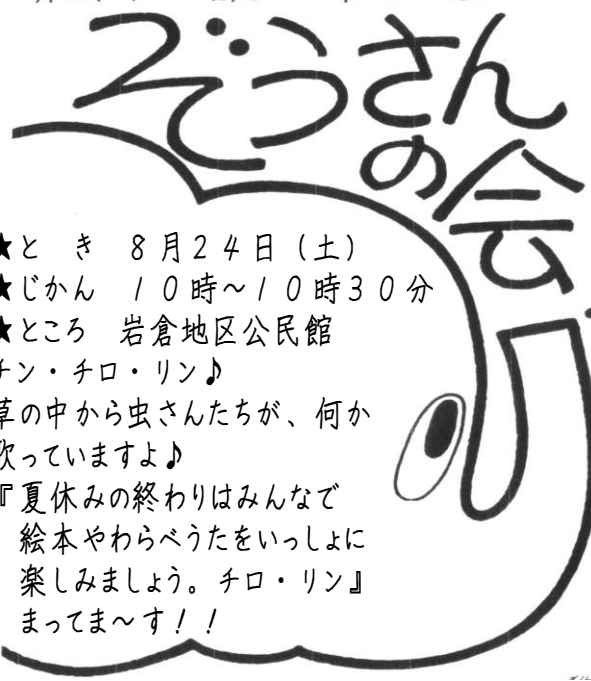 ぞうさん
の会
★と き 8月24日(土)
★じかん 10時~10時30分
★ところ 岩倉地区公民館
チン・チロ・リン♪
草の中から虫さんたちが、何か
歌っていますよ♪
『夏休みの終わりはみんなで
絵本やわらべうたをいっしょに
楽しみましょう。チロ・リン』
まってま~す!!